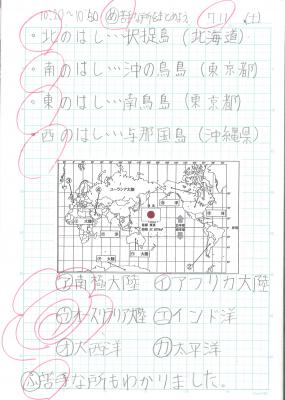 10:20~10:50 ㋱苦手な所をとくいに 7/11(土)
・北のはし…択捉島(北海道)
・南のはし…沖の鳥島(東京都)
・東のはし…南鳥島(東京都)
・西のはし…与那国島(沖縄県)
ユーラシア大陸
㋐南極大陸 ㋑アフリカ大陸
㋒オーストラリア大陸 ㋓インド洋
㋔大西洋 ㋕太平洋
㋫苦手な所もわかりました。